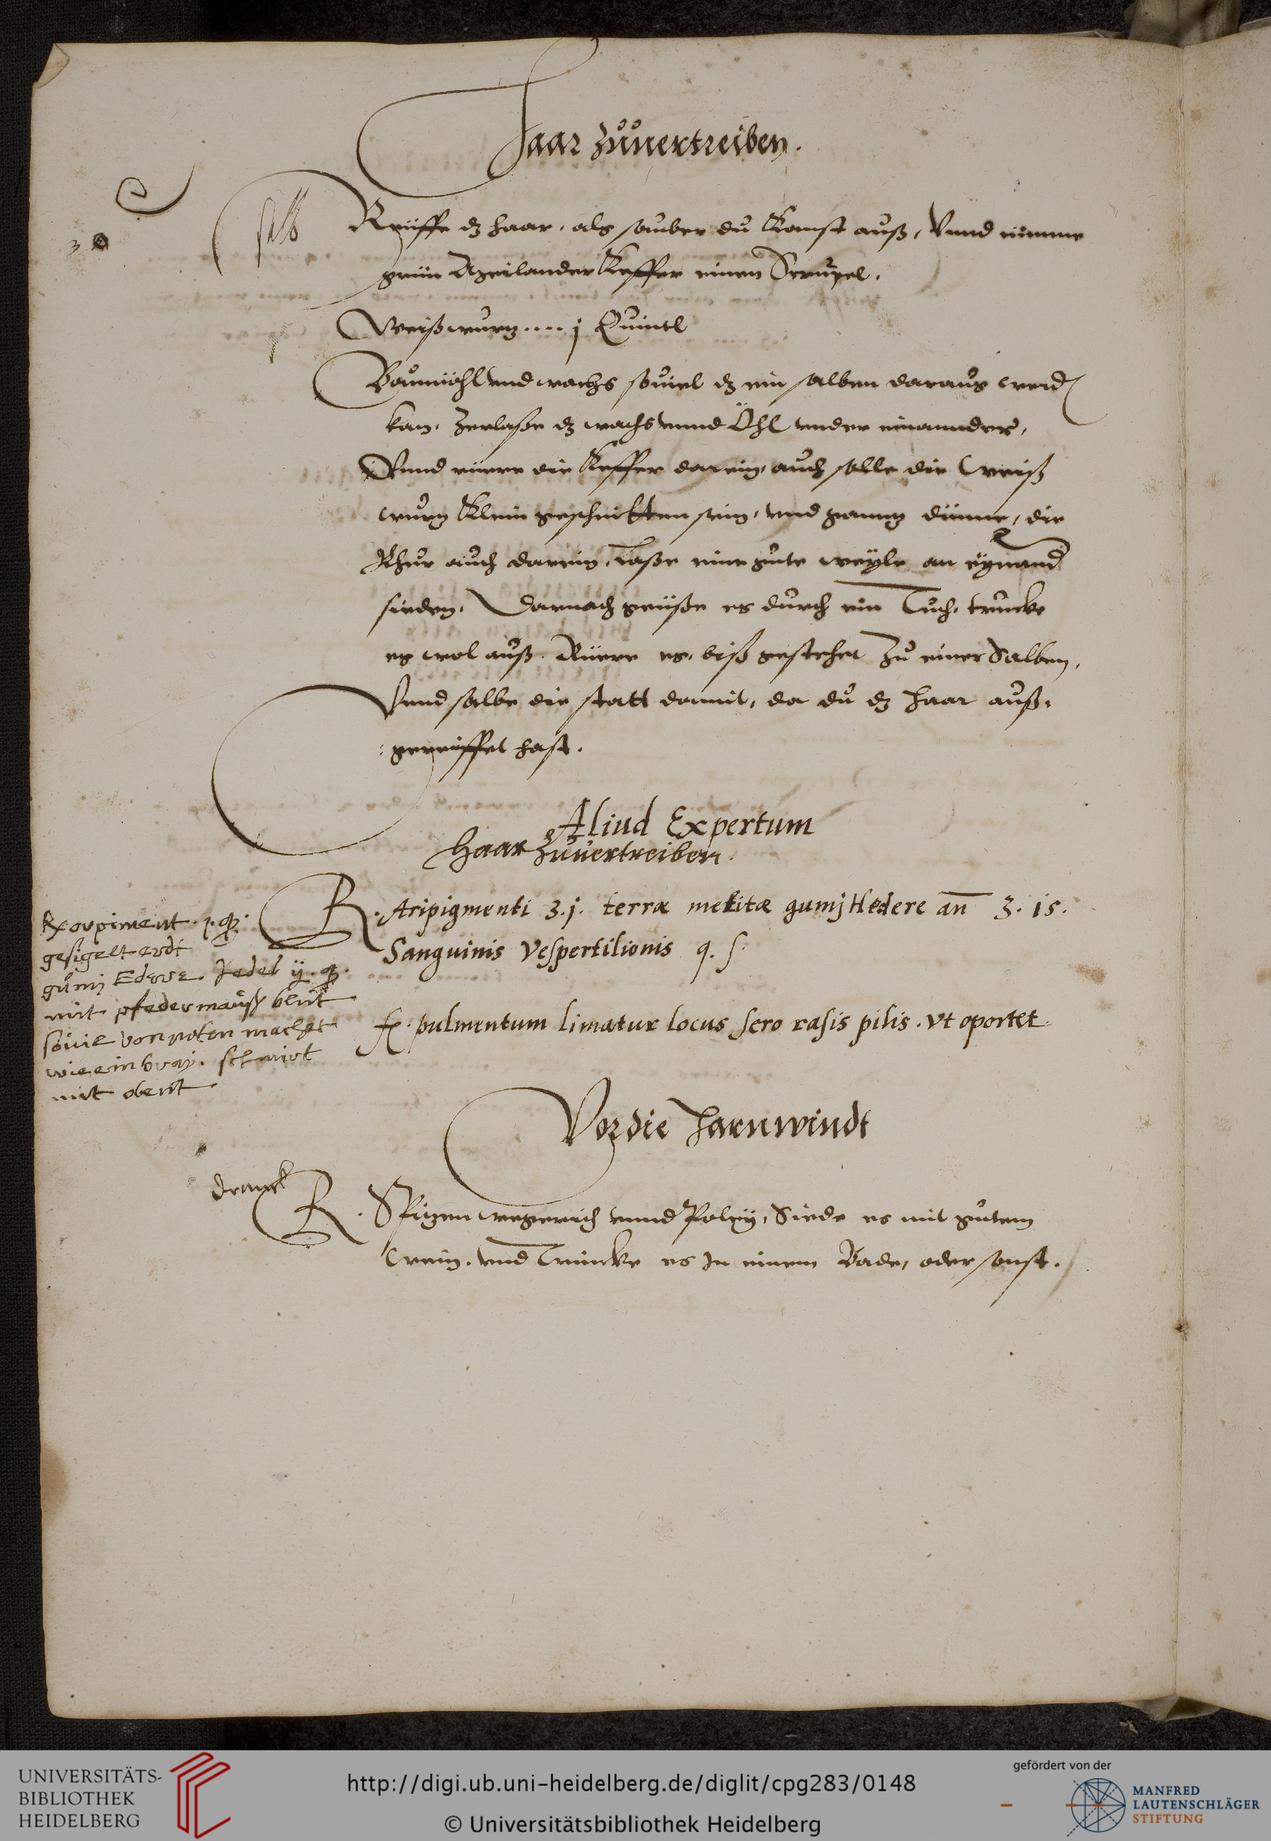 Haar Zůuertreiben.
salb
Reüffe dz haar, als sauber du Kanst auß, Vnnd nimme
grün Keffer einen Scrupel.
Weißwurtz .... j Quintl
Baumöhl vnd wachs souiel dz ein salben daraus werd
kan, Zerlaße dz wachs vnnd Öhl vnder einannder,
Vnnd rüere die Keffer darein, auch solle die Weiß
wurtz Klein geschnitten sein, vnd ganntz dünne, die
Rhür auch darein, Laße eine gute weyle an
sieden, Darnach geüße es durch ein Tuch, trucke
es wol auß. Rüere es, biß gestehet Zu einer Salben,
Vnnd salbe die statt damit, da du dz Haar auß-
gereüffet hast.
Aliud Expertum
Haar Zůuertreiben.
R. Aripigmenti ʒ.j. terræ gumj Hedere añ ʒ.is.
Sanguinis Vespertilionis q. s.
fc. pulmentum limatur locus sero rasis pilis. Vt oportet.
R orpiment .1. q.
gesigelt erdt
gumj Edere. Jedes ij. q.
mit pfedermauß blůt
souil von noten machet
wie ein bray. schmirt
mit obent
Vor die Harnwindt
dranck
R. Spitzenwegerich vnnd Poley, Siede es mit gutem
Wein, vnd Trincke es In einem Bade, oder sonst.
UNIVERSITÄTS-
BIBLIOTHEK
HEIDELBERG
http://digi.ub.uni-heidelberg.de/diglit/cpg283/0148
© Universitätsbibliothek Heidelberg
gefördert von der
MANFRED
LAUTENSCHLÄGER
STIFTUNG